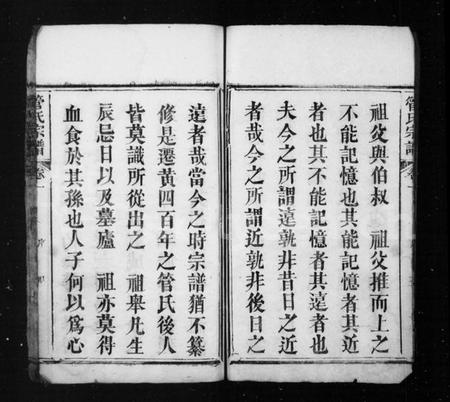 管氏宗譜 卷一
祖父與伯叔 祖父推而上之
不能記憶也其能記憶者其近
者也其不能記憶者其遠者也
夫今之所謂遠孰非昔日之近
者哉今之所謂近孰非後日之
遠者哉當今之時宗譜猶不纂
修是遷黃四百年之管氏後人
皆莫識所從出之 祖舉凡生
辰忌日以及墓廬 祖亦莫得
血食於其孫也人子何以為心
管氏宗譜 卷一